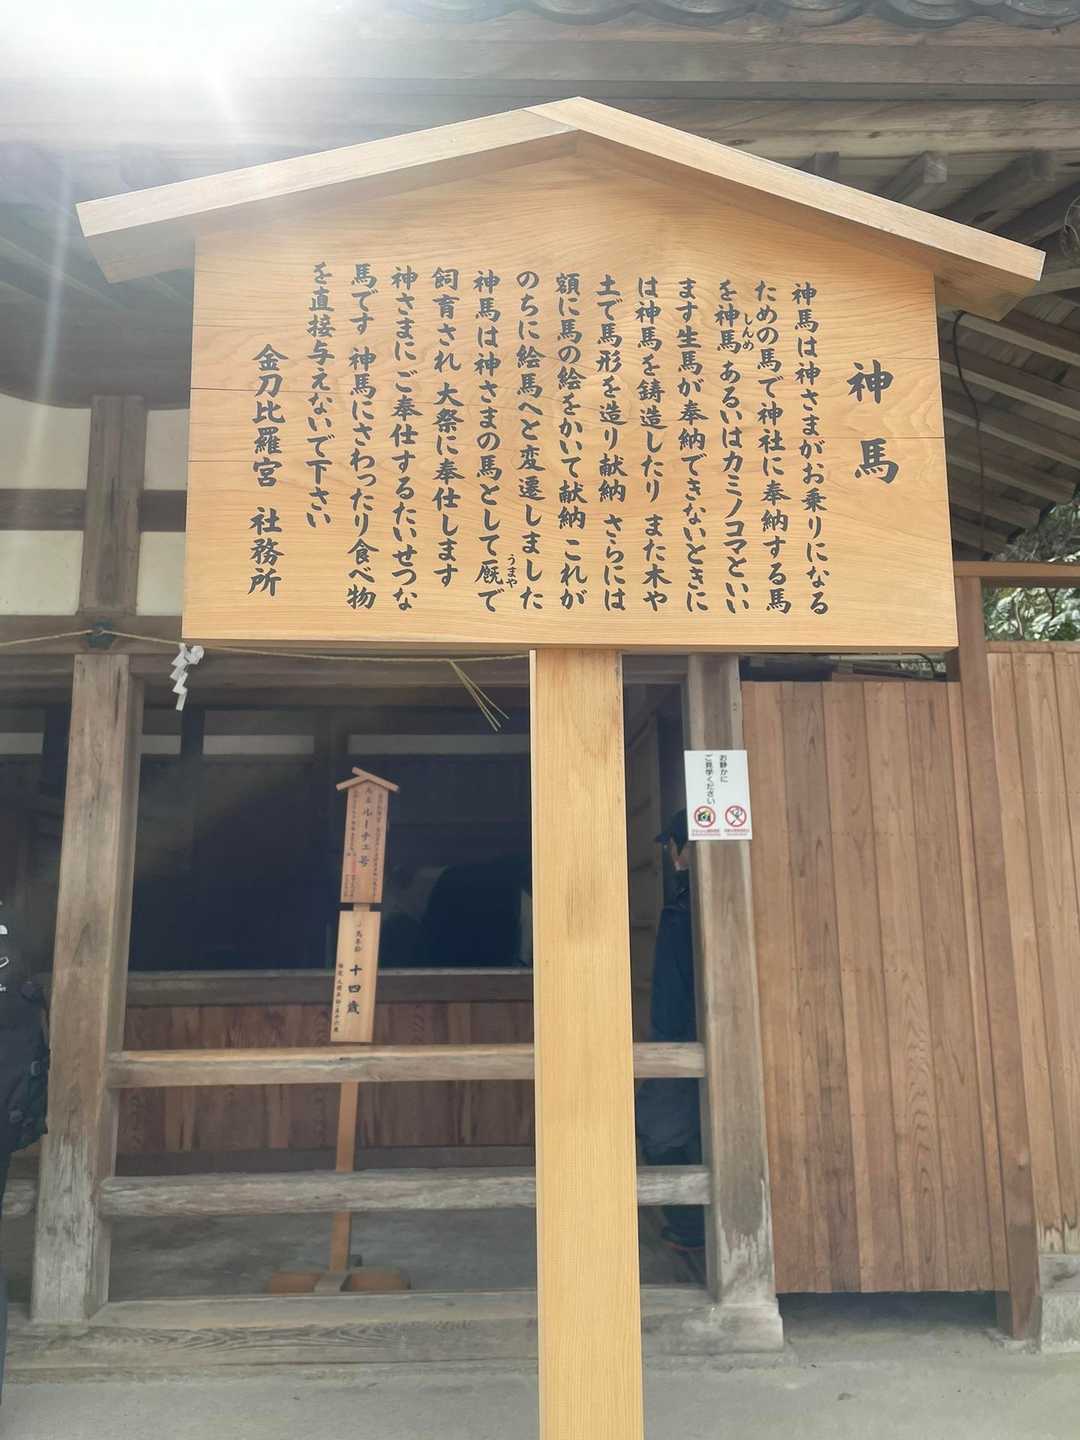 神馬
神馬は神さまがお乗りになる
ための馬で神社に奉納する馬
を神馬あるいはカミノコマといい
しんめ
ます生馬が奉納できないときに
は神馬を鋳造したり また木や
土で馬形を造り献納 さらには
額に馬の絵をかいて献納 これが
のちに絵馬へと変遷しました
神馬は神さまの馬として厩で
うまや
飼育され 大祭に奉仕します
神さまにご奉仕するたいせつな
馬です 神馬にさわったり食べ物
を直接与えないで下さい
金刀比羅宮 社務所
お静かに
ご見学ください
ルーチェ号
馬年齢
十四歳